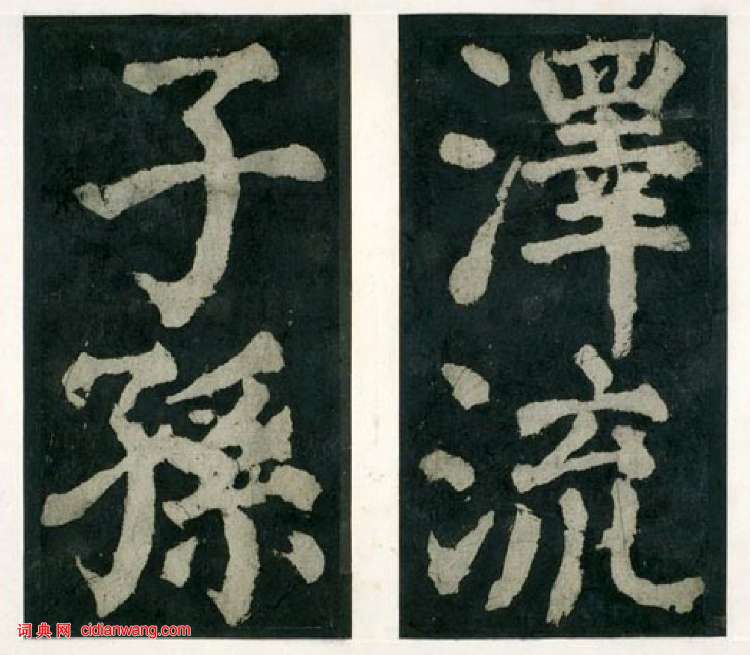 澤流
子孫
词典网 cidianwang.com